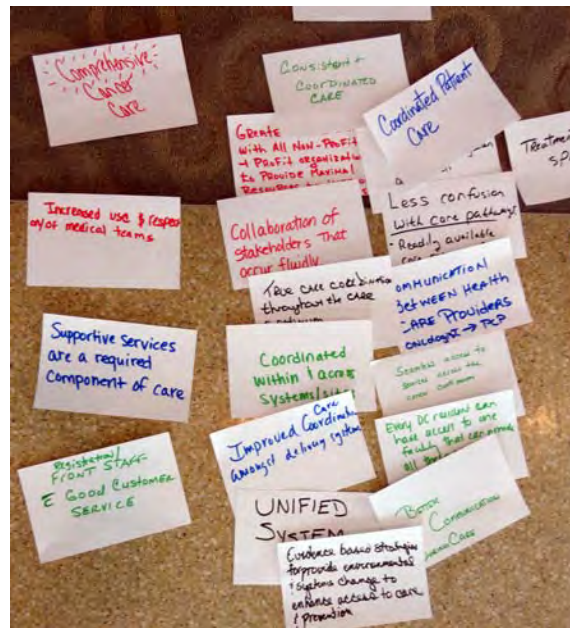 Comprehensive
Cancer
Care
Consistent +
Coordinated
Care
Coordinated Patient
Care
Create
with All Non-Profit
+ Profit
to Provide Maximal
Resources
Treatment
Increased use & respect
on/of medical teams
Collaboration of
stakeholders That
occur fluidly
Less confusion
with care pathways
- Readily available
True care
throughout the care
Communication
Between Health
Care Providers
oncologist → PCP
Supportive Services
are a required
component of care
Coordinated
within & across
systems/
Seamless access to
across the
cancer continuum
Improved Care
amongst delivery
Every DC resident can
have access to one
facility that can provide
all
Registration/
Front Staff-
Good Customer
Service
UNIFIED
SYSTEM
Better
Communication
Care
Evidence based strategies
for provide environmental
& systems change to
enhance access to care
& prevention